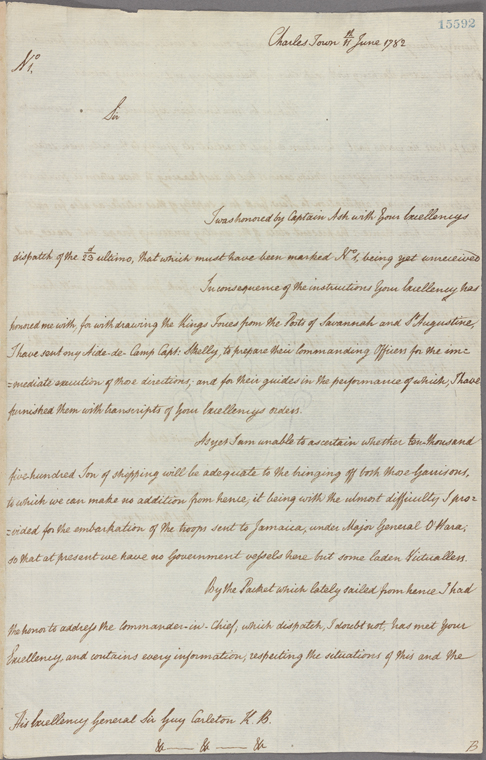 15592
Charles Town 11th June 1782
No 1.
Sir
I was honored by Captain Ash with Your Excellencys
dispatch of the 23d ultimo, that which must have been marked No 1, being yet unreceived
In consequence of the instructions Your Excellency has
honored me with, for withdrawing the Kings Forces from the Posts of Savannah and St Augustine,
I have sent my Aide-de-Camp Capt: Skelly, to prepare their Commanding Officers for the im=
=mediate execution of those directions; and for their guides in the performance of which, I have
furnished them with transcripts of Your Excellencys orders.
As yet I am unable to ascertain whether ten thousand
five hundred Ton of shipping will be adequate to the bringing off both those Garrisons,
to which we can make no addition from hence, it being with the utmost difficulty I pro=
=vided for the embarkation of the troops sent to Jamaica, under Major General O'Hara;
so that at present we have no Government vessels here but some laden Victuallers.
By the Packet which lately sailed from hence I had
the honor to address the Commander-in-Chief, which dispatch, I doubt not, has met Your
Excellency, and contains every information, respecting the situations of this and the
His Excellency General Sir Guy Carleton K. B.
&c —— &c —— &c
B